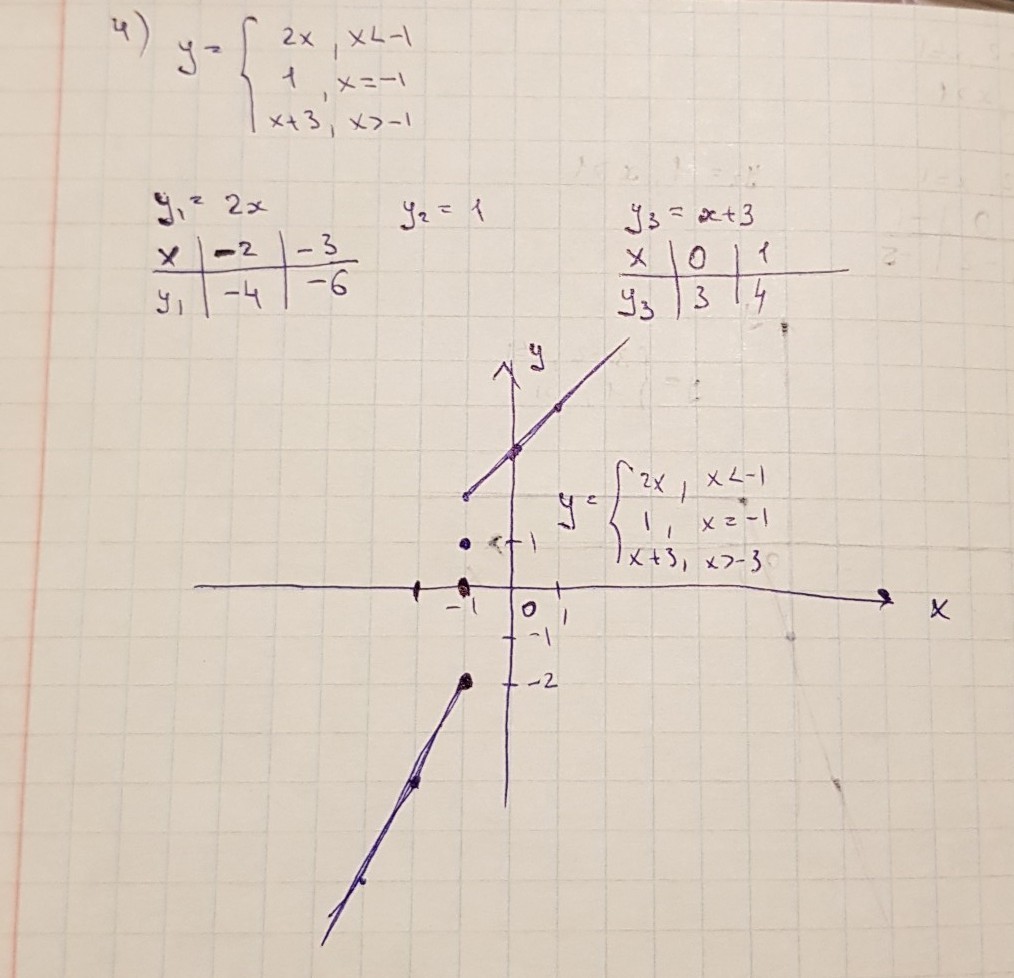 4) y = { 2x, x<-1
1, x=-1
x+3, x>-1
y₁ = 2x
x | -2 | -3
y₁ | -4 | -6
y₂ = 1
y₃ = x+3
x | 0 | 1
y₃ | 3 | 4
y
y = { 2x, x<-1
1, x=-1
x+3, x>-3
1
-1 0 1 x
-1
-2